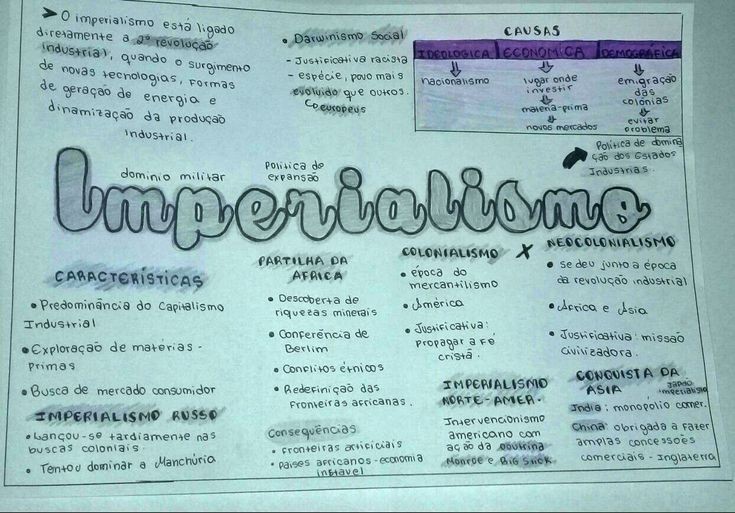 ➤ O imperialismo está ligado
diretamente a 2ª revolução
industrial, quando o surgimento
de novas tecnologias, formas
de geração de energia e
dinamização da produção
industrial.
• Darwinismo Social
- Justificativa racista
- espécie, povo mais
evoluído que outros.
↳ europeus
CAUSAS
IDEOLÓGICA
nacionalismo
ECONÔMICA
lugar onde
investir
matéria-prima
novos mercados
DEMOGRÁFICA
emigração
das
colônias
evitar
problema
Política de domina
ção dos Estados
Industrias.
dominio militar
Politica de
expansão
Imperialismo
CARACTERÍSTICAS
• Predominância do Capitalismo
Industrial
• Exploração de matérias-
Primas
• Busca de mercado consumidor
IMPERIALISMO RUSSO
• Lançou-se tardiamente nas
buscas coloniais.
• Tentou dominar a Manchúria
PARTILHA DA
AFRICA
• Descoberta de
riquezas minerais
• Conferência de
Berlim
• Conflitos étnicos
• Redefinição das
Fronteiras africanas.
Consequências
• Fronteiras artificiais
• Países africanos - economia
instável
COLONIALISMO X NEOCOLONIALISMO
• época do
mercantilismo
• América
• Justificativa:
propagar a fé
cristã.
• se deu junto a época
da revolução industrial
• África e Ásia
• Justificativa: missão
civilizadora.
IMPERIALISMO
NORTE-AMER.
Intervencionismo
americano com
ação da Doutrina
Monroe e Big Stick
CONQUISTA DA
ÁSIA
Japão
imperialista
India: monopólio comer.
China: obrigada a fazer
amplas concessões
comerciais - Inglaterra